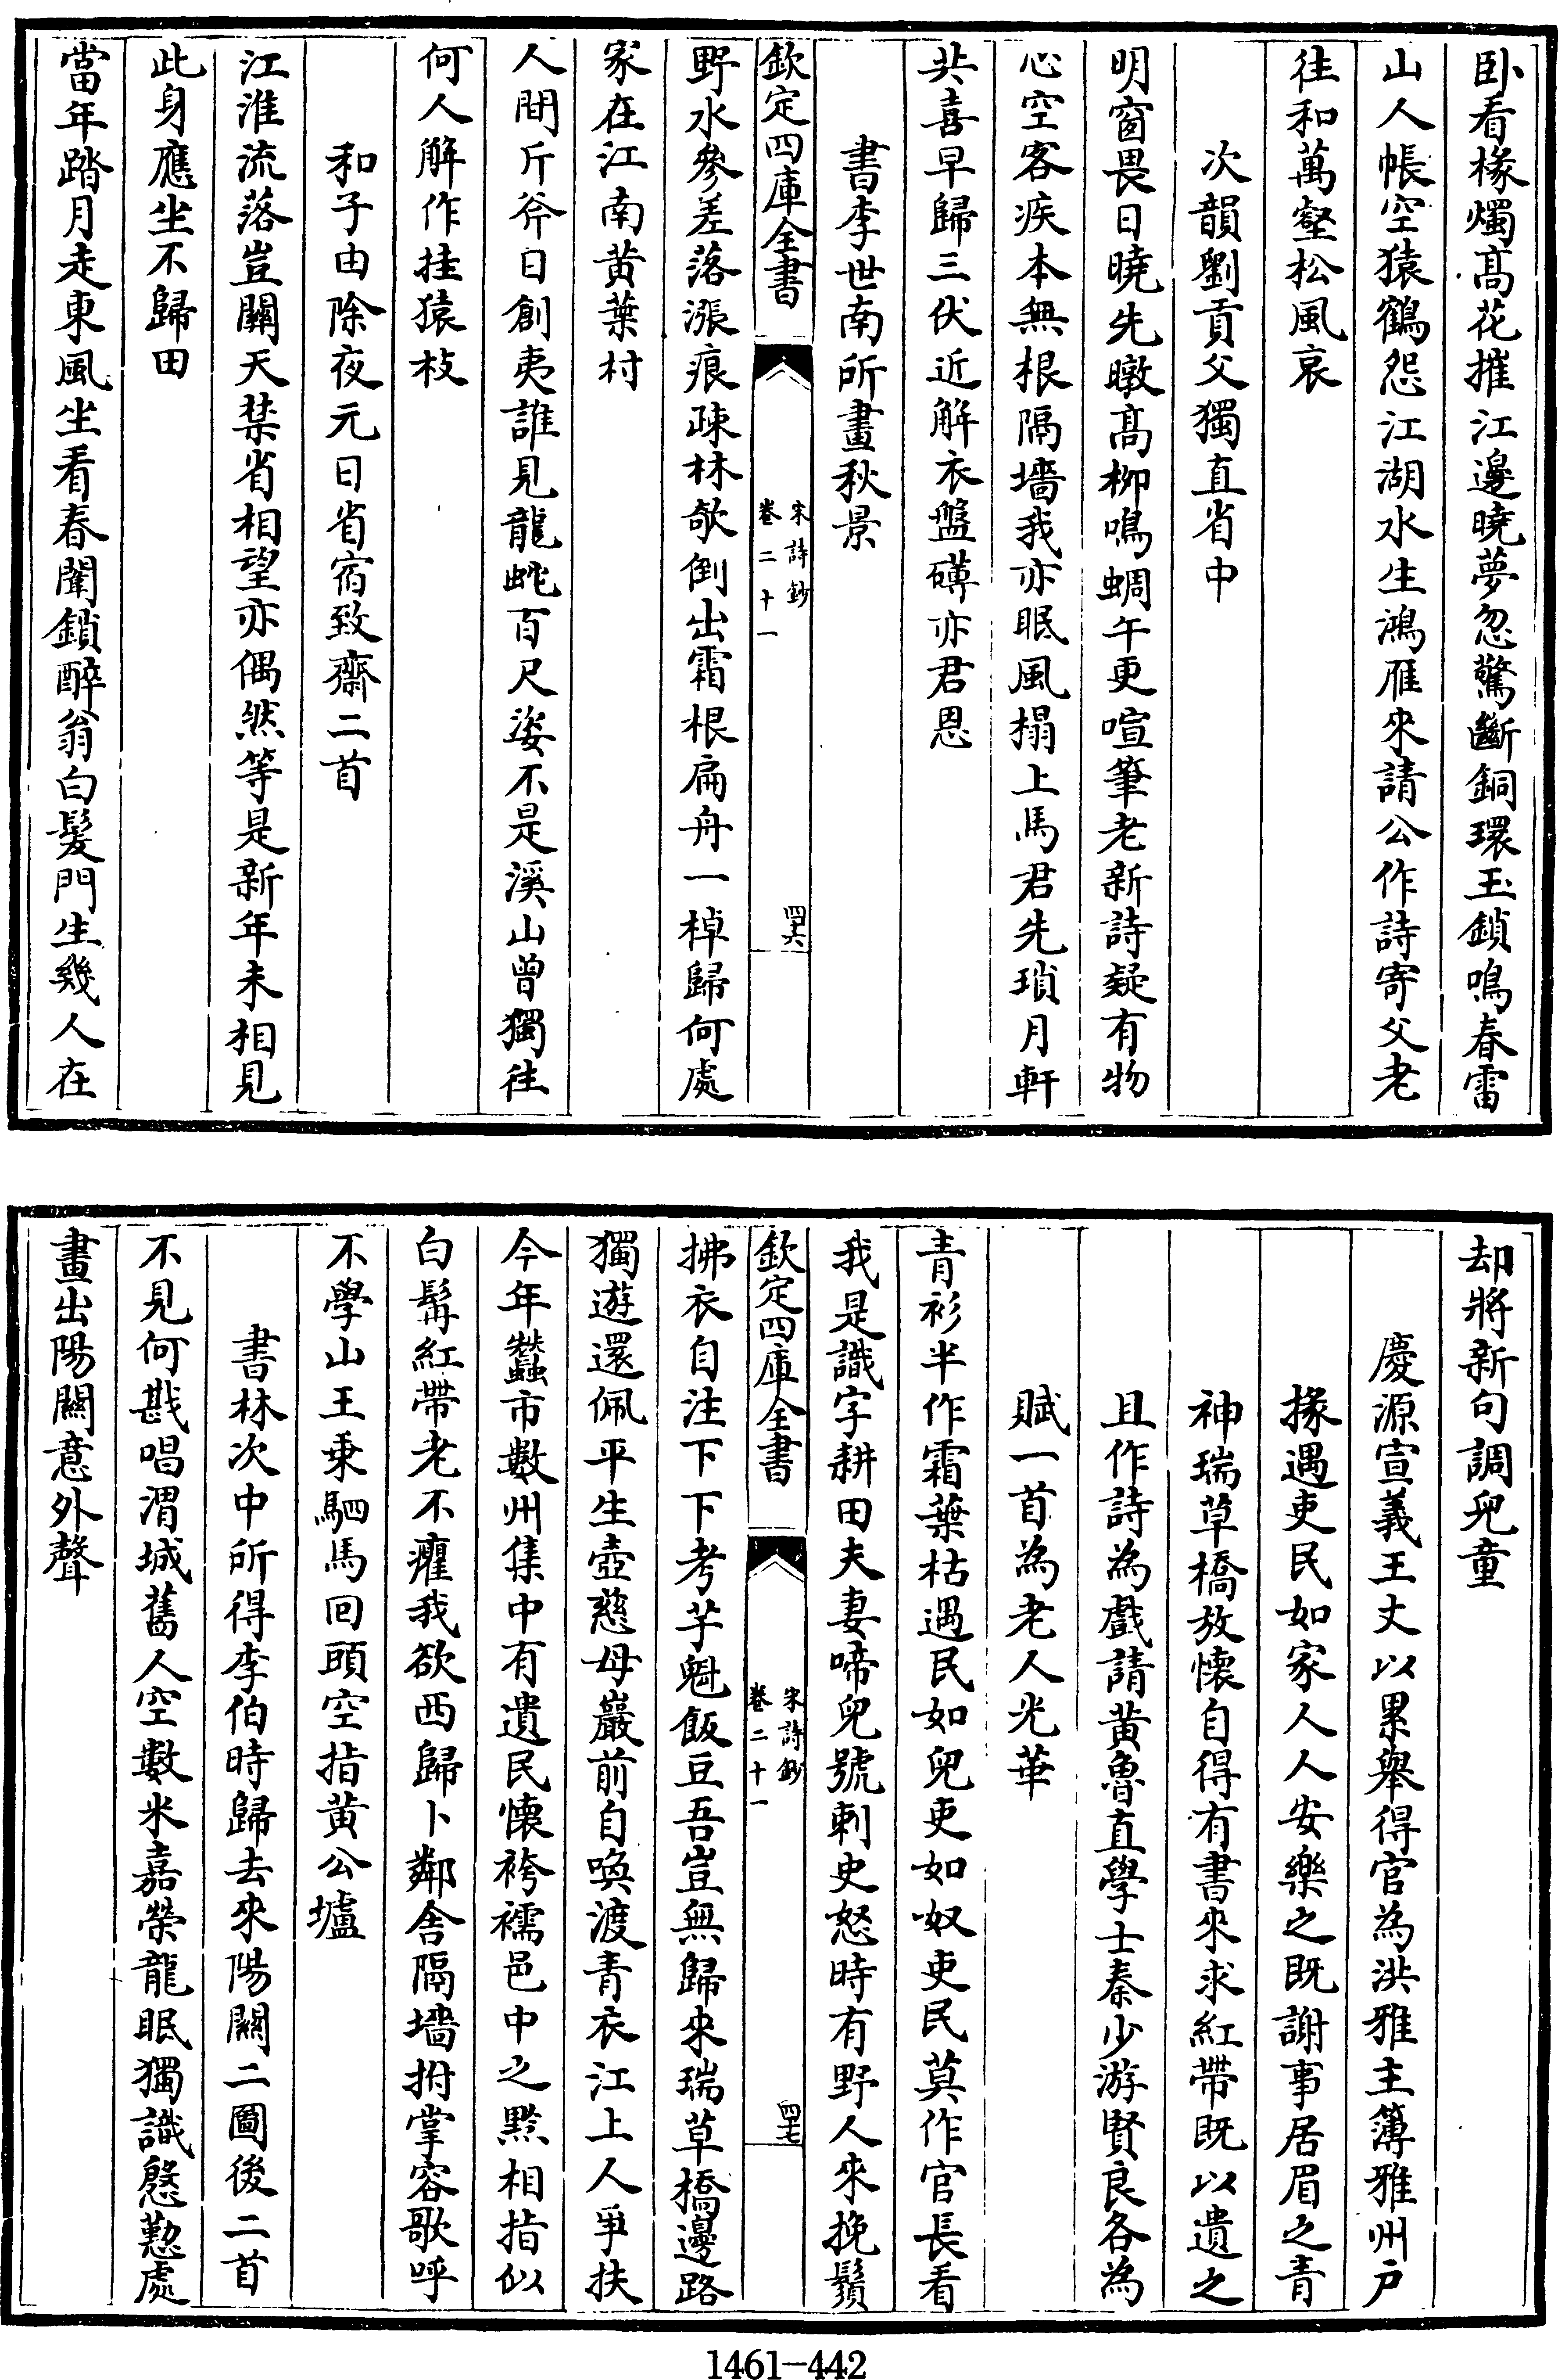 卧看椽燭髙花摧江邊曉夢忽驚斷銅環玉鎖鳴春雷
山人帳空猿鶴怨江湖水生鴻雁來請公作詩寄父老
徃和萬壑松風哀
次韻劉貢父獨直省中
明窗畏日曉先暾髙柳鳴蜩午更喧筆老新詩疑有物
心空客疾本無根隔墻我亦眠風榻上馬君先瑣月軒
共喜早歸三伏近解衣盤礴亦君恩
書李世南所畫秋景
欽定四庫全書
宋詩鈔
卷二十一
四六
野水參差落漲痕疎林欹倒出霜根扁舟一棹歸何處
家在江南黄葉村
人間斤斧日創夷誰見龍蛇百尺姿不是溪山曾獨往
何人解作挂猿枝
和子由除夜元日省宿致齋二首
江淮流落豈關天禁省相望亦偶然等是新年未相見
此身應坐不歸田
當年踏月走東風坐看春闈鎖醉翁白髮門生幾人在
却將新句調兒童
慶源宣義王丈以累舉得官為洪雅主簿雅州户
掾遇吏民如家人人安樂之既謝事居眉之青
神瑞草橋放懷自得有書來求紅帶既以遺之
且作詩為戲請黄魯直學士秦少游賢良各為
賦一首為老人光華
青衫半作霜葉枯遇民如兒吏如奴吏民莫作官長看
我是識字耕田夫妻啼兒號刺史怒時有野人來挽鬚
欽定四庫全書
宋詩鈔
卷二十一
四七
拂衣自注下下考芋魁飯豆吾豈無歸來瑞草橋邊路
獨遊還佩平生壺慈母巖前自喚渡青衣江上人爭扶
今年蠶市數州集中有遺民懷袴襦邑中之黔相指似
白髯紅帶老不癯我欲西歸卜鄰舍隔墻拊掌容歌呼
不學山王乗駟馬回頭空指黄公壚
書林次中所得李伯時歸去來陽關二圖後二首
不見何戡唱渭城舊人空數米嘉榮龍眠獨識慇懃處
畫出陽關意外聲
1461-442